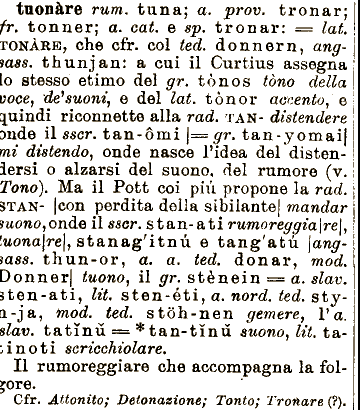 tuonàre rum. tuna; a. prov. tronar;
fr. tonner; a. cat. e sp. tronar: = lat.
TONÀRE, che cfr. col ted. donnern, ang-
sass. thunjan: a cui il Curtius assegna
lo stesso etimo del gr. tònos tòno della
voce, de'suoni, e del lat. tònor accento, e
quindi riconnette alla rad. TAN- distendere
onde il sscr. tan-ômi |= gr. tan-yomai|
mi distendo, onde nasce l'idea del disten-
dersi o alzarsi del suono, del rumore (v.
Tono). Ma il Pott coi più propone la rad.
STAN- |con perdita della sibilante| mandar
suono, onde il sscr. stan-ati rumoreggia|re|,
tuona|re|, stanag'itnú e tang'atú |ang-
sass. thun-or, a. a. ted. donar, mod.
Donner| tuono, il gr. stènein = a. slav.
sten-ati, lit. sten-éti, a. nord. ted. sty-
n-ja, mod. ted. stöh-nen gemere, l'a.
slav. tatĭnŭ = *tan-tĭnŭ suono, lit. ta-
tinoti scricchiolare.
Il rumoreggiare che accompagna la fol-
gore.
Cfr. Attonito; Detonazione; Tonto; Tronare (?).